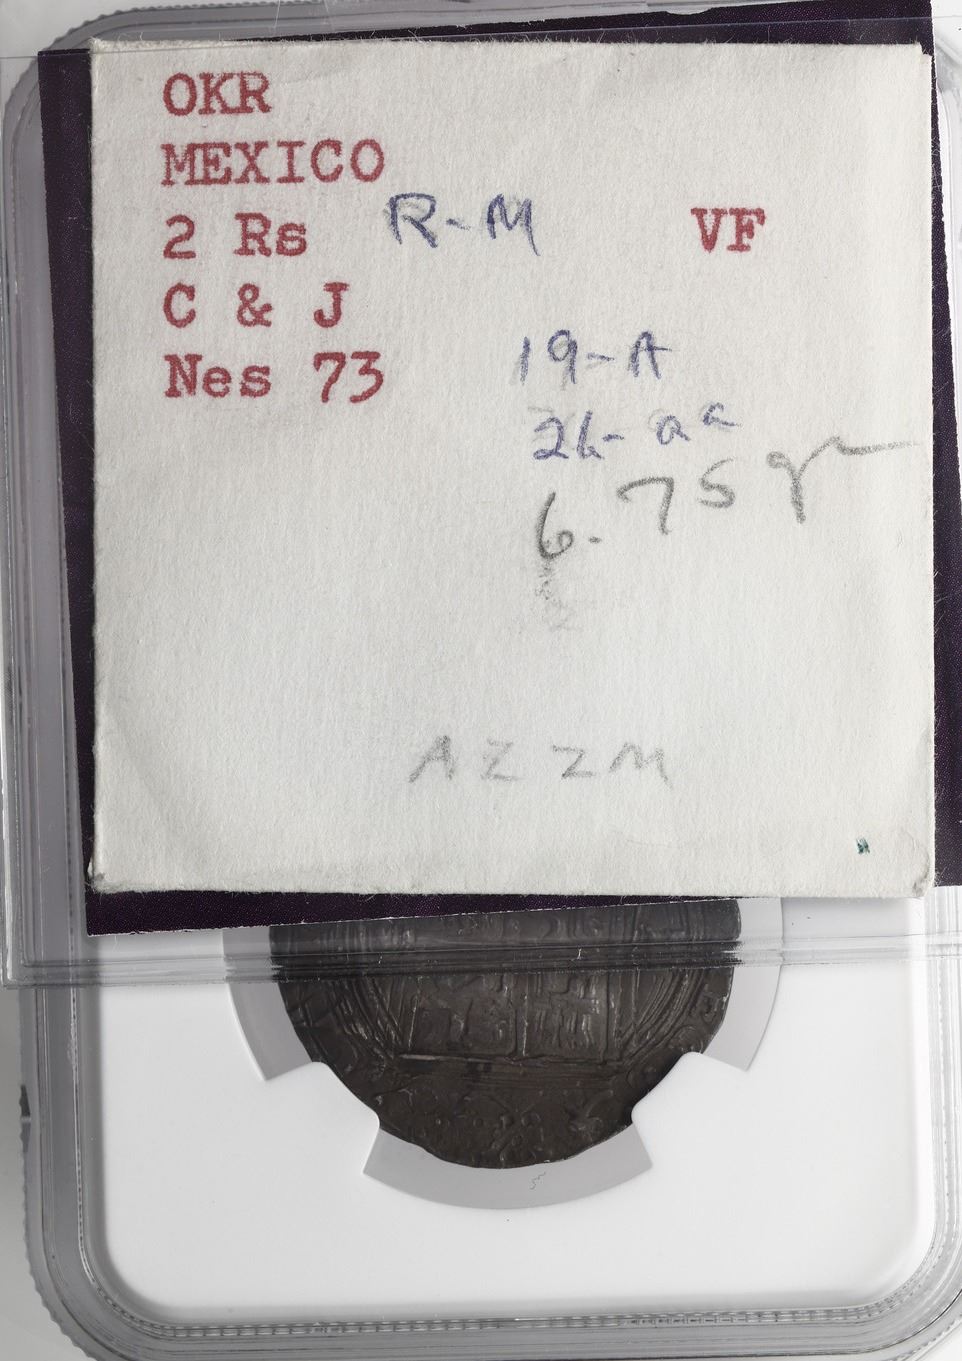 OKR
MEXICO
2 Rs R-M VF
C & J
19-A
Nes 73
26-aa
6.75 gr
AZZM